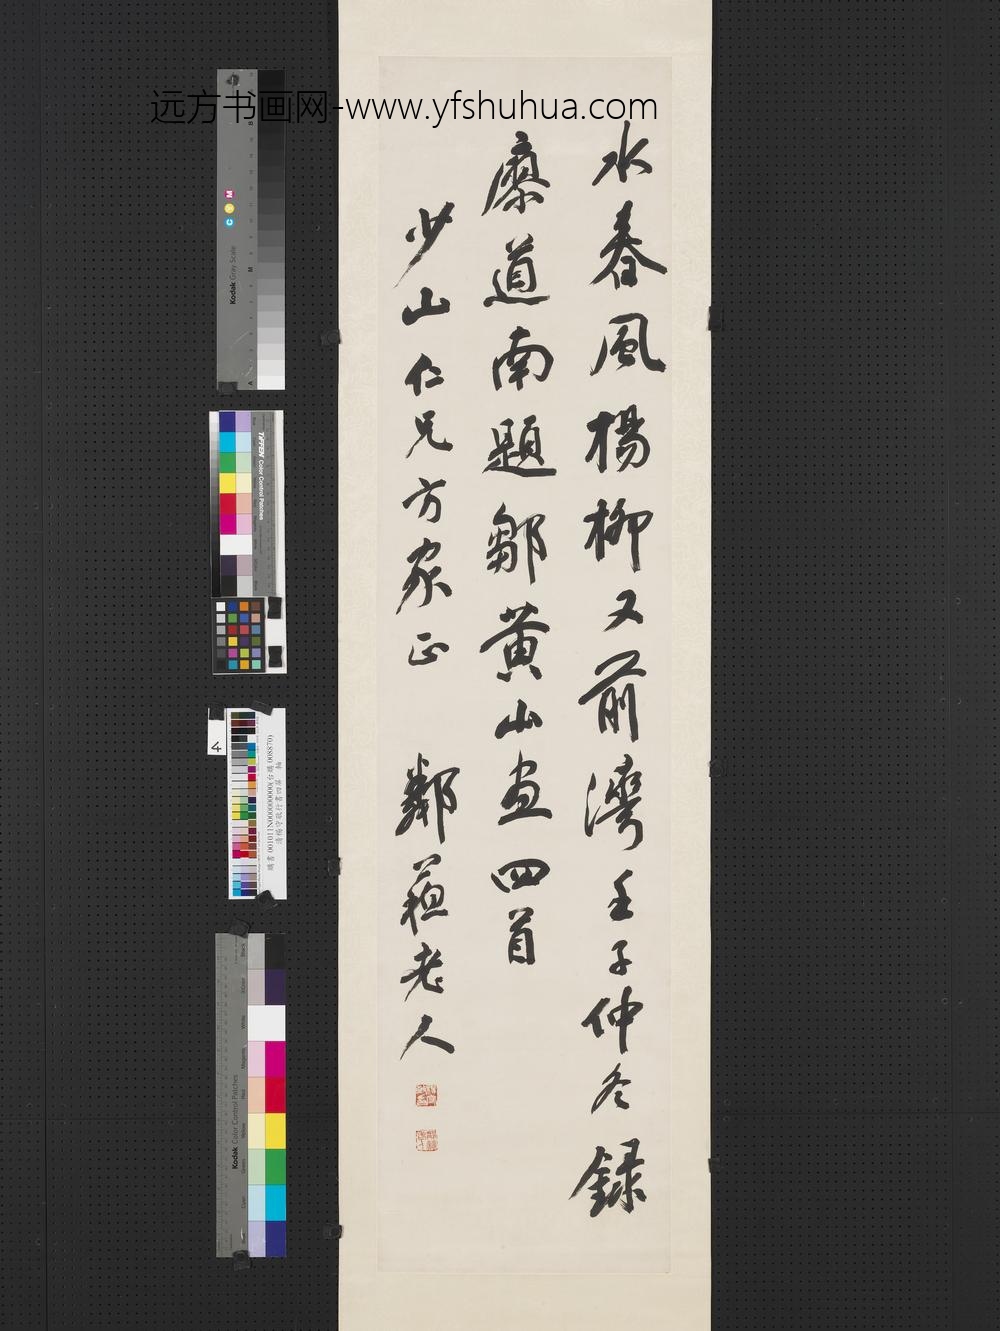 远方书画网-www.yfshuhua.com
水春風楊柳又前灣壬子仲冬録
廖道南題鄒黄山畫四首
少山仁兄方家正 鄰蘓老人
Kodak Gray Scale
C Y M
B
M
A
TIFFEN Color Control Patches
4
Kodak Color Control Patches
Black
3/Color
White
Magenta
Red
Yellow
Green
Cyan